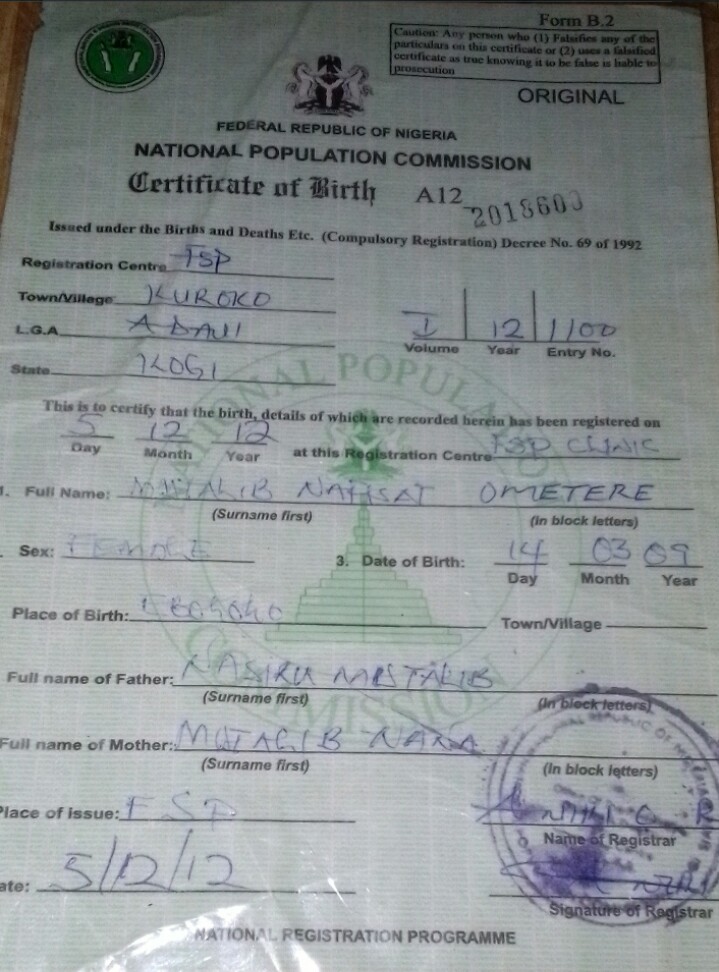 Form B.2
Caution: Any person who (1) Falsifies any of the
particulars on this certificate or (2) uses a falsified
certificate as true knowing it to be false is liable to
prosecution
ORIGINAL
FEDERAL REPUBLIC OF NIGERIA
NATIONAL POPULATION COMMISSION
Certificate of Birth A12
Issued under the Births and Deaths Etc. (Compulsory Registration) Decree No. 69 of 1992
Registration Centre FSP
Town/Village KUROKO
L.G.A ADAVI
State KOGI
I 12 1100
Volume Year Entry No.
This is to certify that the birth, details of which are recorded herein has been registered on
5 12 12
Day Month Year at this Registration Centre FSP CLINIC
1. Full Name: OMETERE
(Surname first) (in block letters)
Sex: FEMALE 3. Date of Birth: 14 03 09
Day Month Year
Place of Birth: Town/Village
Full name of Father: NASIRU
(Surname first) (in block letters)
Full name of Mother: NANA
(Surname first) (in block letters)
Place of Issue: FSP
Name of Registrar
ate: 5/12/12
Signature of Registrar
NATIONAL REGISTRATION PROGRAMME
NATIONAL POPULATION
COMMISSION